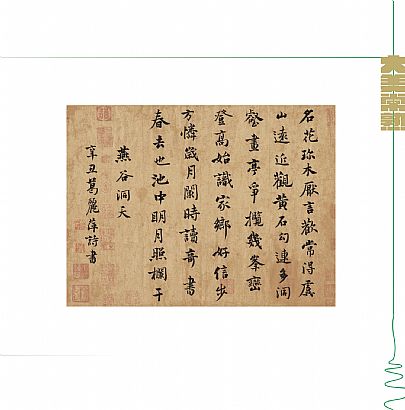 大美常熟
名花珎木厭言歡常得虞
山遠近觀黃石勾連多洞
壑畫亭爭攬幾峯巒
登高始識家鄉好信步
方憐歲月闌時讀奇書
春去也池中明月照欄干
燕谷洞天
辛丑葛麗萍詩書